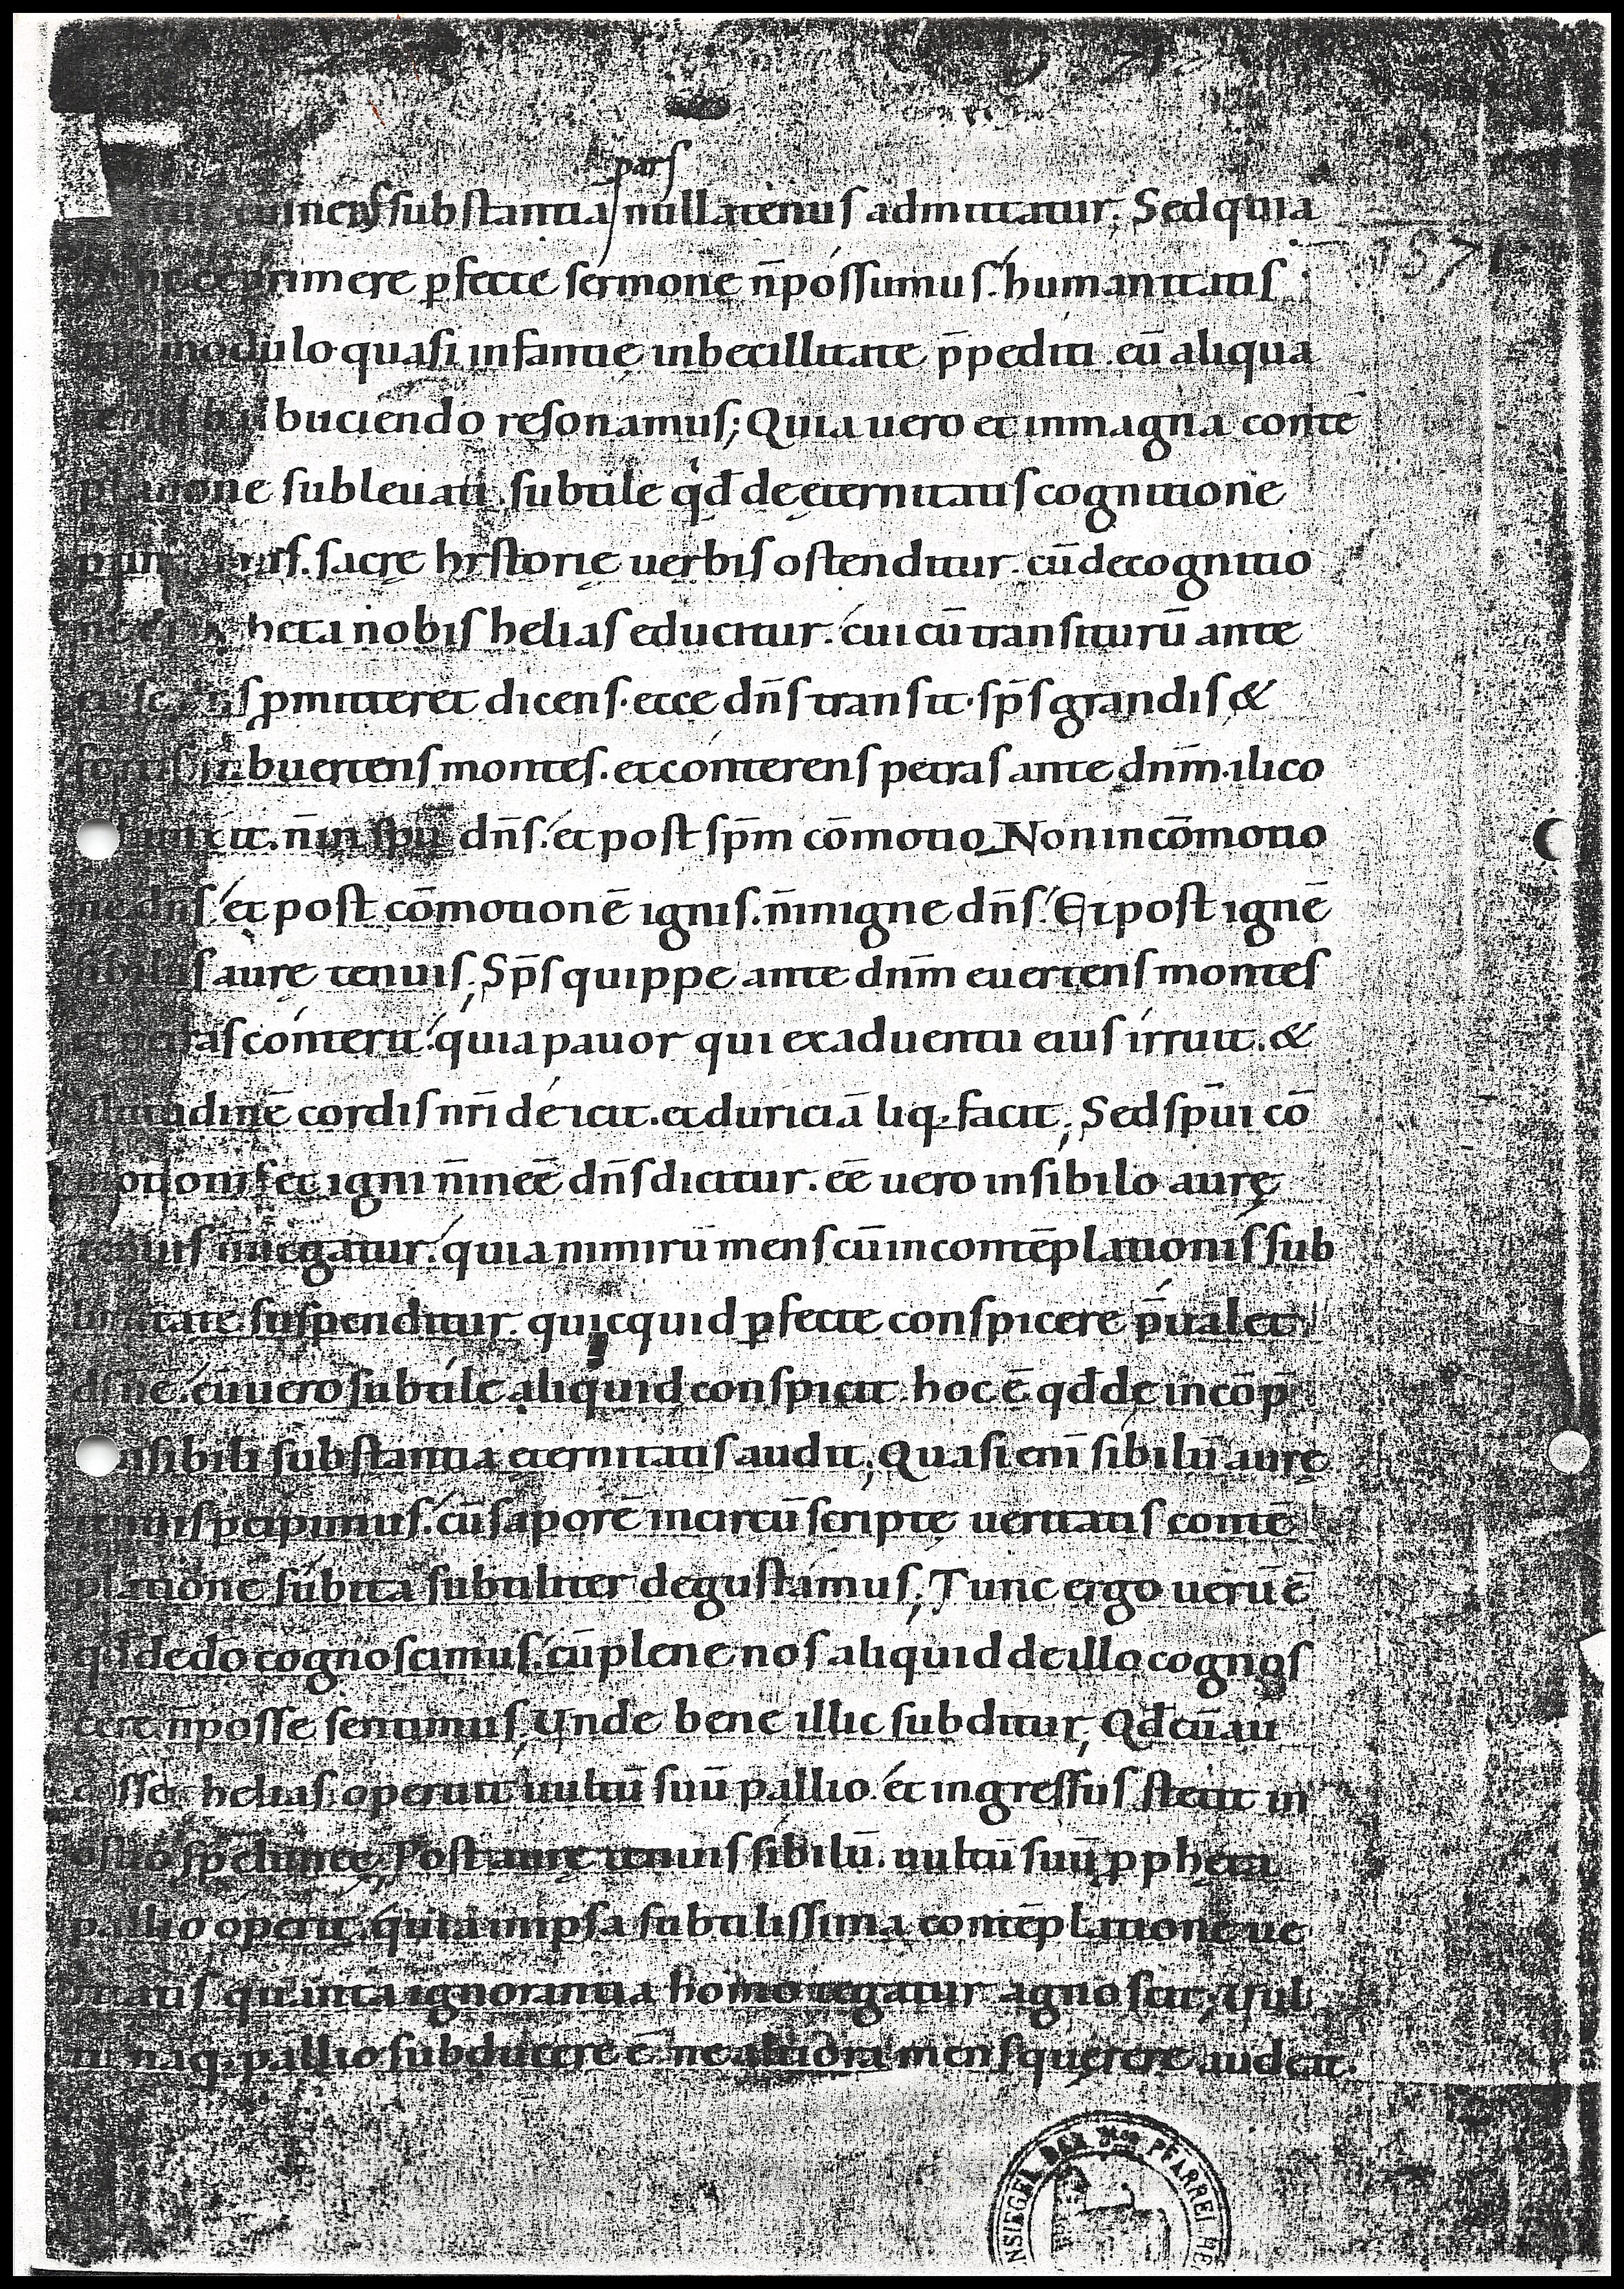 pars
substantia nullatenus admittatur; Sed quia
exprimere p̄fecte sermone n̄ possumus. humanitatis
modulo quasi infantię inbecillitate p̄pediti. eū aliqua
buciendo resonamus; Quia uero et in magna contē
platione subleuati. subtile qđ de ęternitatis cognitione
sacrę hystorię uerbis ostenditur. cū de cognitio
heta nobis helias educitur. cui cū transiturū ante
s p̄mitteret dicens. ecce dn̄s transit. sp̄s grandis &
buertens montes. et conterens petras ante dn̄m. ilico
n̄ in spū dn̄s. et post sp̄m cōmotio. Non in cōmotio
ne dn̄s. et post cōmotionē ignis. n̄ in igne dn̄s. Et post ignē
sibilus aurę tenuis; Sp̄s quippe ante dn̄m euertens montes
et petras conterit. quia pauor qui ex aduentu eius irruit. &
altitudinē cordis nr̄i deicit. et duriciā liq;facit; Sed sp̄ui cō
motioni et igni n̄ inēe dn̄s dicitur. ēe uero in sibilo aurę
tenuis n̄ negatur. quia nimirū mens cū in contēplationis sub
limitate suspenditur. quicquid p̄fecte conspicere p̄ualet.
ds̄ n̄ ē. cū uero subtile aliquid conspicit. hoc ē qđ de incōp̄
hensibili substantia ęternitatis audit; Quasi eni sibilū aurę
tenuis p̄cipimus. cū saporē incircūscriptę ueritatis contē
platione subita subtiliter degustamus; Tunc ergo uerū ē
qđ de dō cognoscimus. cū plene nos aliquid de illo cognos
cere n̄ posse sentimus; Unde bene illic subditur; Qđ cū au
disset helias. operuit uultū suū pallio. et ingressus stetit in
ostio spelunce; Post aurę tenuis sibilū. uultū suū p̄pheta
pallio operit. quia in ipsa subtilissima contēplatione ue
ritatis quanta ignorantia homo tegatur agnoscit; Uul
tui naq; pallio subducere ē. ne altiora mens querere audeat.